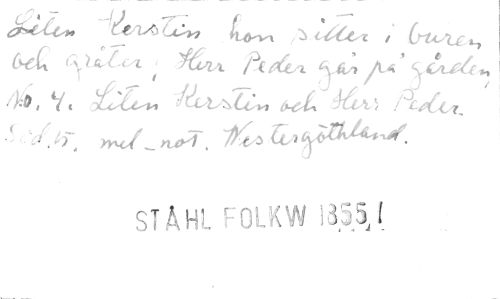 Liten Kerstin hon sitter i buren
och gråter; Herr Peder går på gården,
No. 4. Liten Kerstin och Herr Peder.
Söd. 15. mel-not. Westergöthland.
STÅHL FOLKW 1855,1